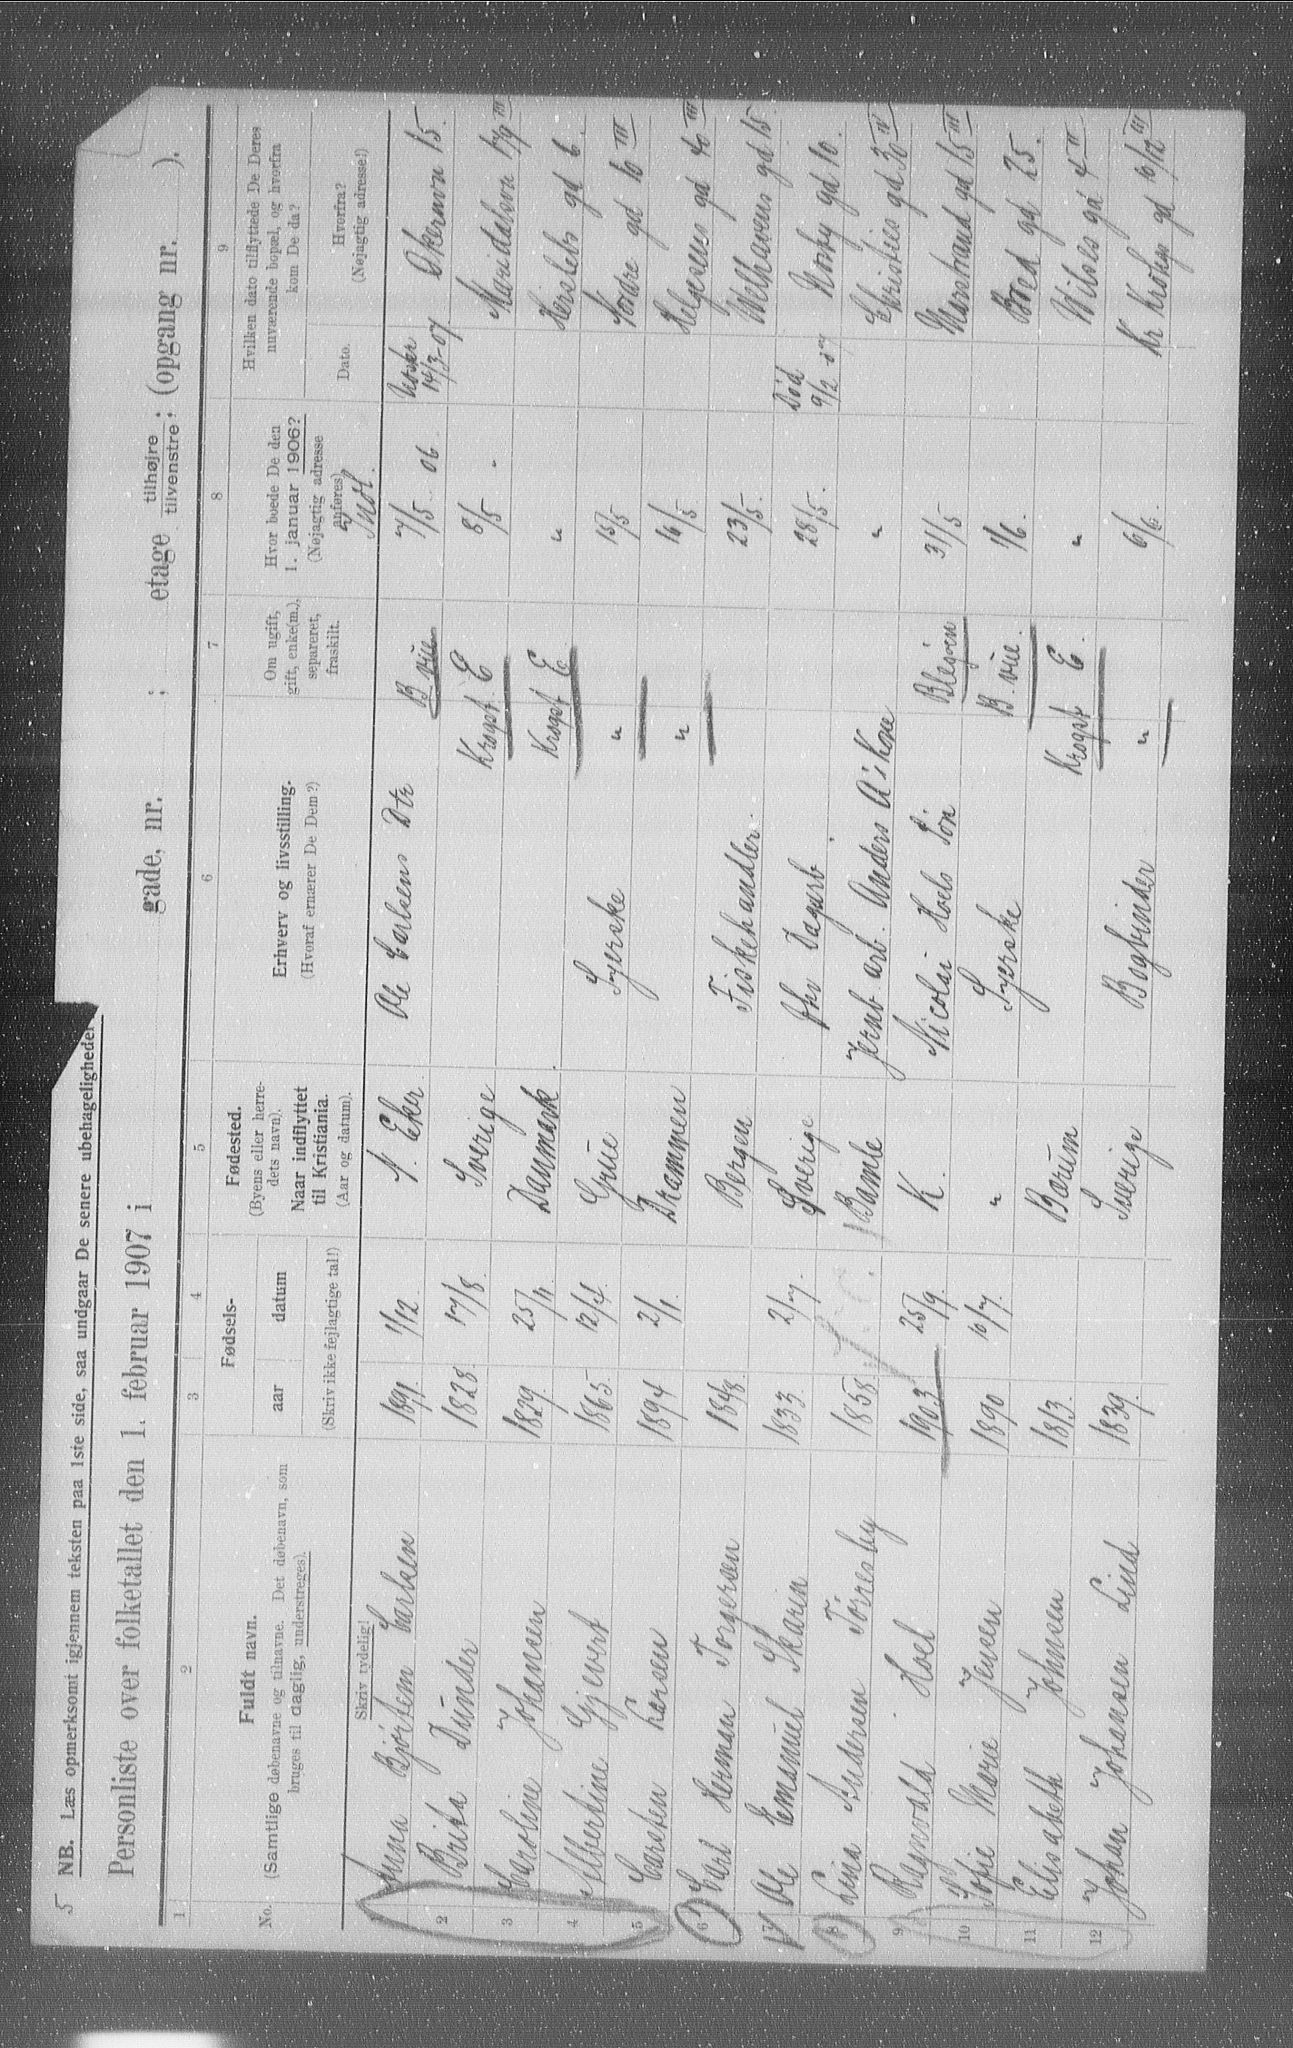 5 NB. Læs opmerksomt igjennem teksten paa 1ste side, saa undgaar De senere ubehageligheder
Personliste over folketallet den 1. februar 1907 i gade, nr. ; etage tilhøjre / tilvenstre ; (opgang nr. ).
1 2 3 4 5 6 7 8 9
No.
Fuldt navn.
(Samtlige døbenavne og tilnavne. Det døbenavn, som
bruges til daglig, understreges).
Skriv tydelig!
Fødsels-
aar datum
(Skriv ikke fejlagtige tal!)
Fødested.
(Byens eller herre-
dets navn).
Naar indflyttet
til Kristiania.
(Aar og datum).
Erhverv og livsstilling.
(Hvoraf ernærer De Dem?)
Om ugift,
gift, enke(m.),
separeret,
fraskilt.
Hvor boede De den
1. januar 1906?
(Nøjagtig adresse
anføres)
Indl.
Hvilken dato tilflyttede De Deres
nuværende bopæl, og hvorfra
kom De da?
Dato.
Hvorfra?
(Nøjagtig adresse!)
1 Anna Bjørtem Carlsen 1891. 1/12. N. Eker Ole Carlsens Dtr B. vie 7/5 06. 14/3-07 Økernvn 15.
2 Brita Dunder 1828. 17/8. Sverige Krogst. E 8/5 Maridalsvn 179 III
3 Caroline Johansen 1829. 25/11. Danmark. Krogst E " Herslebs gd 6.
4 Albertine Gjevert 1865. 12/4. Grue Syerske " 15/5 Nordre gd 10 III
5 Carsten Larsen 1894 2/1. Drammen " 16/5 Helgesens gd 40 III
6 Carl Herman Torgersen 1848. Bergen Fiskehandler. 23/5. Welhavens gd 15.
7 Ole Emanuel Skarin 1833. 2/7. Sverige fhv Dagarb. 28/5. Død 9/2 07 Norby gd 10.
8 Lina Andersen Torresby 1858 Bamle Jernb. arb. Anders A's Kone " Christies gd 30 IV
9 Ragnvald Hoel 1903 25/9. K. Nicolai Hoels Søn Blegven 31/5 Marstrand gd 15 III
10 Sofie Marie Jensen 1890 10/7. " Syerske B. vie. 1/6. Bred gd 25.
11 Elisabeth Johnsen 1813. Bærum Krogst E. " Wibes gd 4 II
12 Johan Johansen Lind 1839. Sverige Bogbinder " 6/6. Kr Krohgs gd 10/12 III